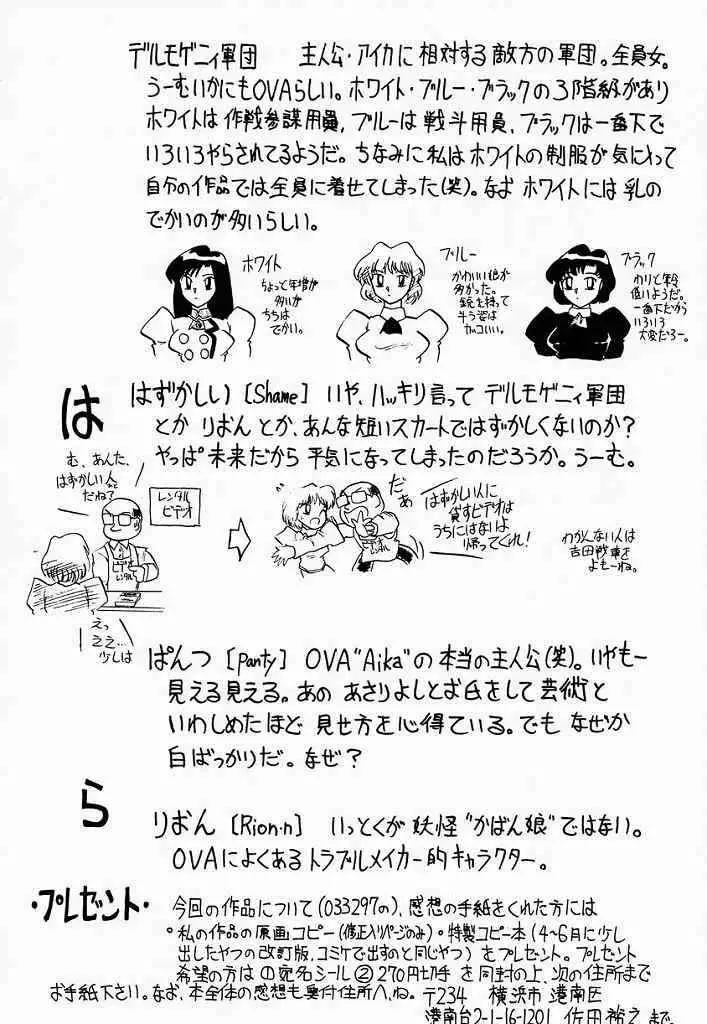 デルモゲニィ軍団　主人公・アイカに相対する敵方の軍団。全員女。
うーむいかにもOVAらしい。ホワイト・ブルー・ブラックの3階級があり
ホワイトは作戦参謀用員，ブルーは戦斗用員，ブラックは一番下で
いろいろやらされてるようだ。ちなみに私はホワイトの制服が気にいって
自分の作品では全員に着せてしまった(笑)。なおホワイトには乳の
でかいのが多いらしい。
ホワイト
ちょっと年増が
多いか
ちちは
でかい。
ブルー
かわいい娘が
多かった。
銃を持って
斗う姿は
カッコいい。
ブラック
わりと年令
低いようだ。
一番下だから
いろいろ
大変だろー。
は
はずかしい [Shame]　いや、ハッキリ言って デルモゲニィ軍団
とか りおん とか、あんな短いスカートではずかしくないのか？
やっぱ 未来だから 平気になってしまったのだろうか。うーむ。
む、あんた、
はずかしい人
だね？
レンタル
ビデオ
ビデオ
レンタル
えっ
ええ…
少しは
だぁ
はずかしい人に
貸すビデオは
うちにはないよ
帰ってくれ！
わかんない人は
吉田戦車を
よもーね。
ぱんつ [panty]　OVA"Aika"の本当の主人公(笑)。いやもー
見える見える。あの あさりよしとお氏をして芸術と
いわしめたほど 見せ方を心得ている。でも なぜか
白ばっかりだ。なぜ？
ら
りおん [Rion・n]　いっとくが 妖怪"かばん娘"ではない。
OVAによくあるトラブルメイカー的キャラクター。
・プレゼント・
今回の作品について(033297の)、感想の手紙をくれた方には
・私の作品の原画コピー(修正入りページのみ)・特製コピー本(4〜6月に少し
出したやつの改訂版、コミケで出すのと同じやつ)をプレゼント。プレゼント
希望の方は ①宛名シール ②270円切手 を同封の上、次の住所まで
お手紙下さい。なお、本全体の感想も奥付住所へ、ね。〒234　横浜市 港南区
港南台2-1-16-1201 佐田 裕之 まで